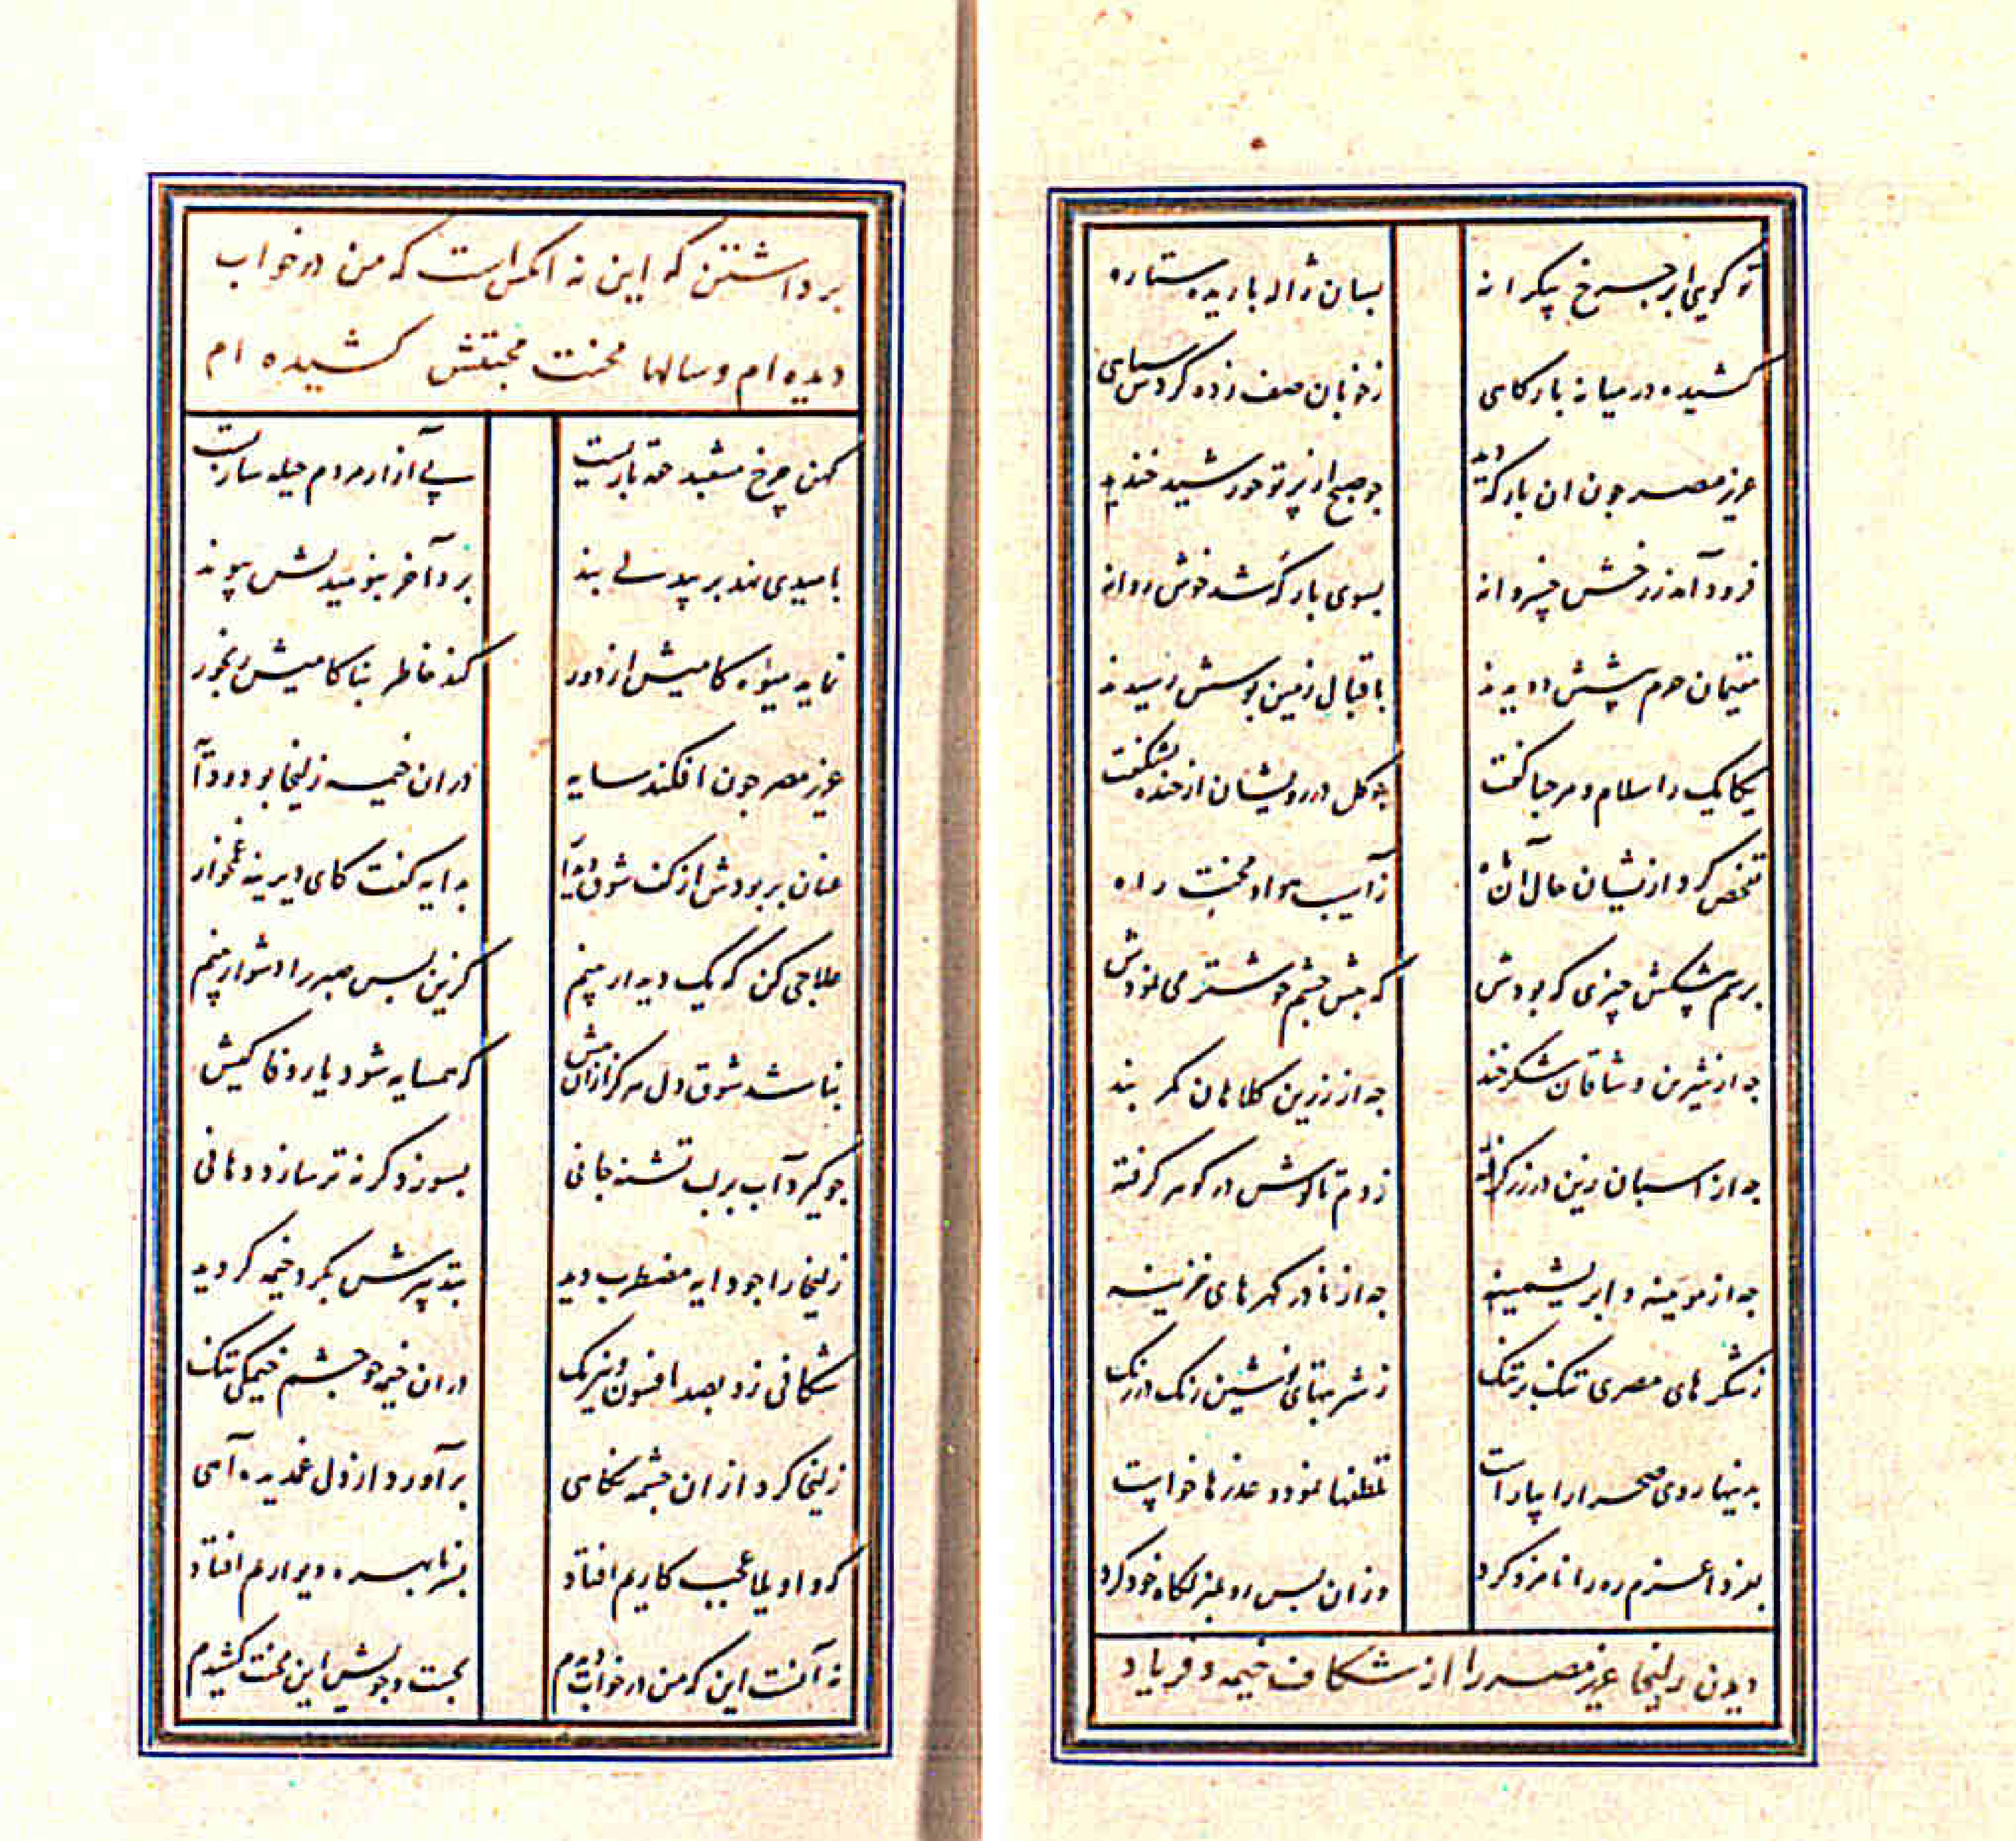 تو کویی ابر جرخ بیکرانه بسان ژاله باریده ستاره
کشیده در میانه بارکاهی زخوبان صف زده کردش سپاهی
عزیز مصر جون ان بارکه دید جو صبح از پرتو خورشید خندید
فرود آمد ز رخش خسروانه بسوی بارکه شد خوش روانه
مقیمان حرم پیشش دویدند باقبال زمین بوسش رسیدند
یکایک را سلام و مرحبا کفت جو کل در رویشان از خنده بشکفت
تفحص کرد از نیشان حال آن ماه ز آسیب هوا و محنت راه
برسم پیشکش چیزی که بودش که پیش چشم خوشتر می نمودش
جه از شیرین وشاقان شکرخند جه از زرین کلاهان کمر بند
جه از اسبان زین در زر کرفته ز دم تا کوش در کوهر کرفته
جه از موینه و ابریشمینه جه از نادر کهرهای خزینه
ز شکرهای مصری تنک بر تنک ز شربتهای نوشین رنک در رنک
بدینها روی صحرا را بیاراست تلطفها نمود و عذرها خواست
بفردا عزم ره را نامزد کرد وزان پس رو بمنزلکاه خود کرد
دیدن زلیخا عزیز مصر را از شکاف خیمه و فریاد
برداشتن که این نه انکس است که من در خواب
دیده ام و سالها محنت محبتش کشیده ام
کهن چرخ مشعبد حقه بازیست پی آزار مردم حیله سازیست
بامیدی نهد بر بیدلی بند برد آخر بنومیدیش پیوند
نماید میوه کامیش از دور کند خاطر بناکامیش رنجور
عزیز مصر جون افکند سایه دران خیمه زلیخا بود و دایه
عنان بربودش از کف شوق دیدار بدایه کفت کای دیرینه غمخوار
علاجی کن که یک دیدار بینم کزین پس صبر را دشوار بینم
نباشد شوق دل هرکز ازان بیش که همسایه شود یار وفا کیش
جو کیرد آب بر لب تشنه جانی بسوزد کر نه تر سازد دهانی
زلیخا را جو دایه مضطرب دید بتدبیرش بکرد خیمه کردید
شکافی زد بصد افسون و نیرنک دران خیمه جو چشم خیمکی تنک
زلیخا کرد از ان خیمه نکاهی برآورد از دل غمدیده آهی
که واویلا عجب کاریم افتاد بسر نابهره دیوارم افتاد
نه آنست این که من در خواب دیدم بجست و جویش این محنت کشیدم